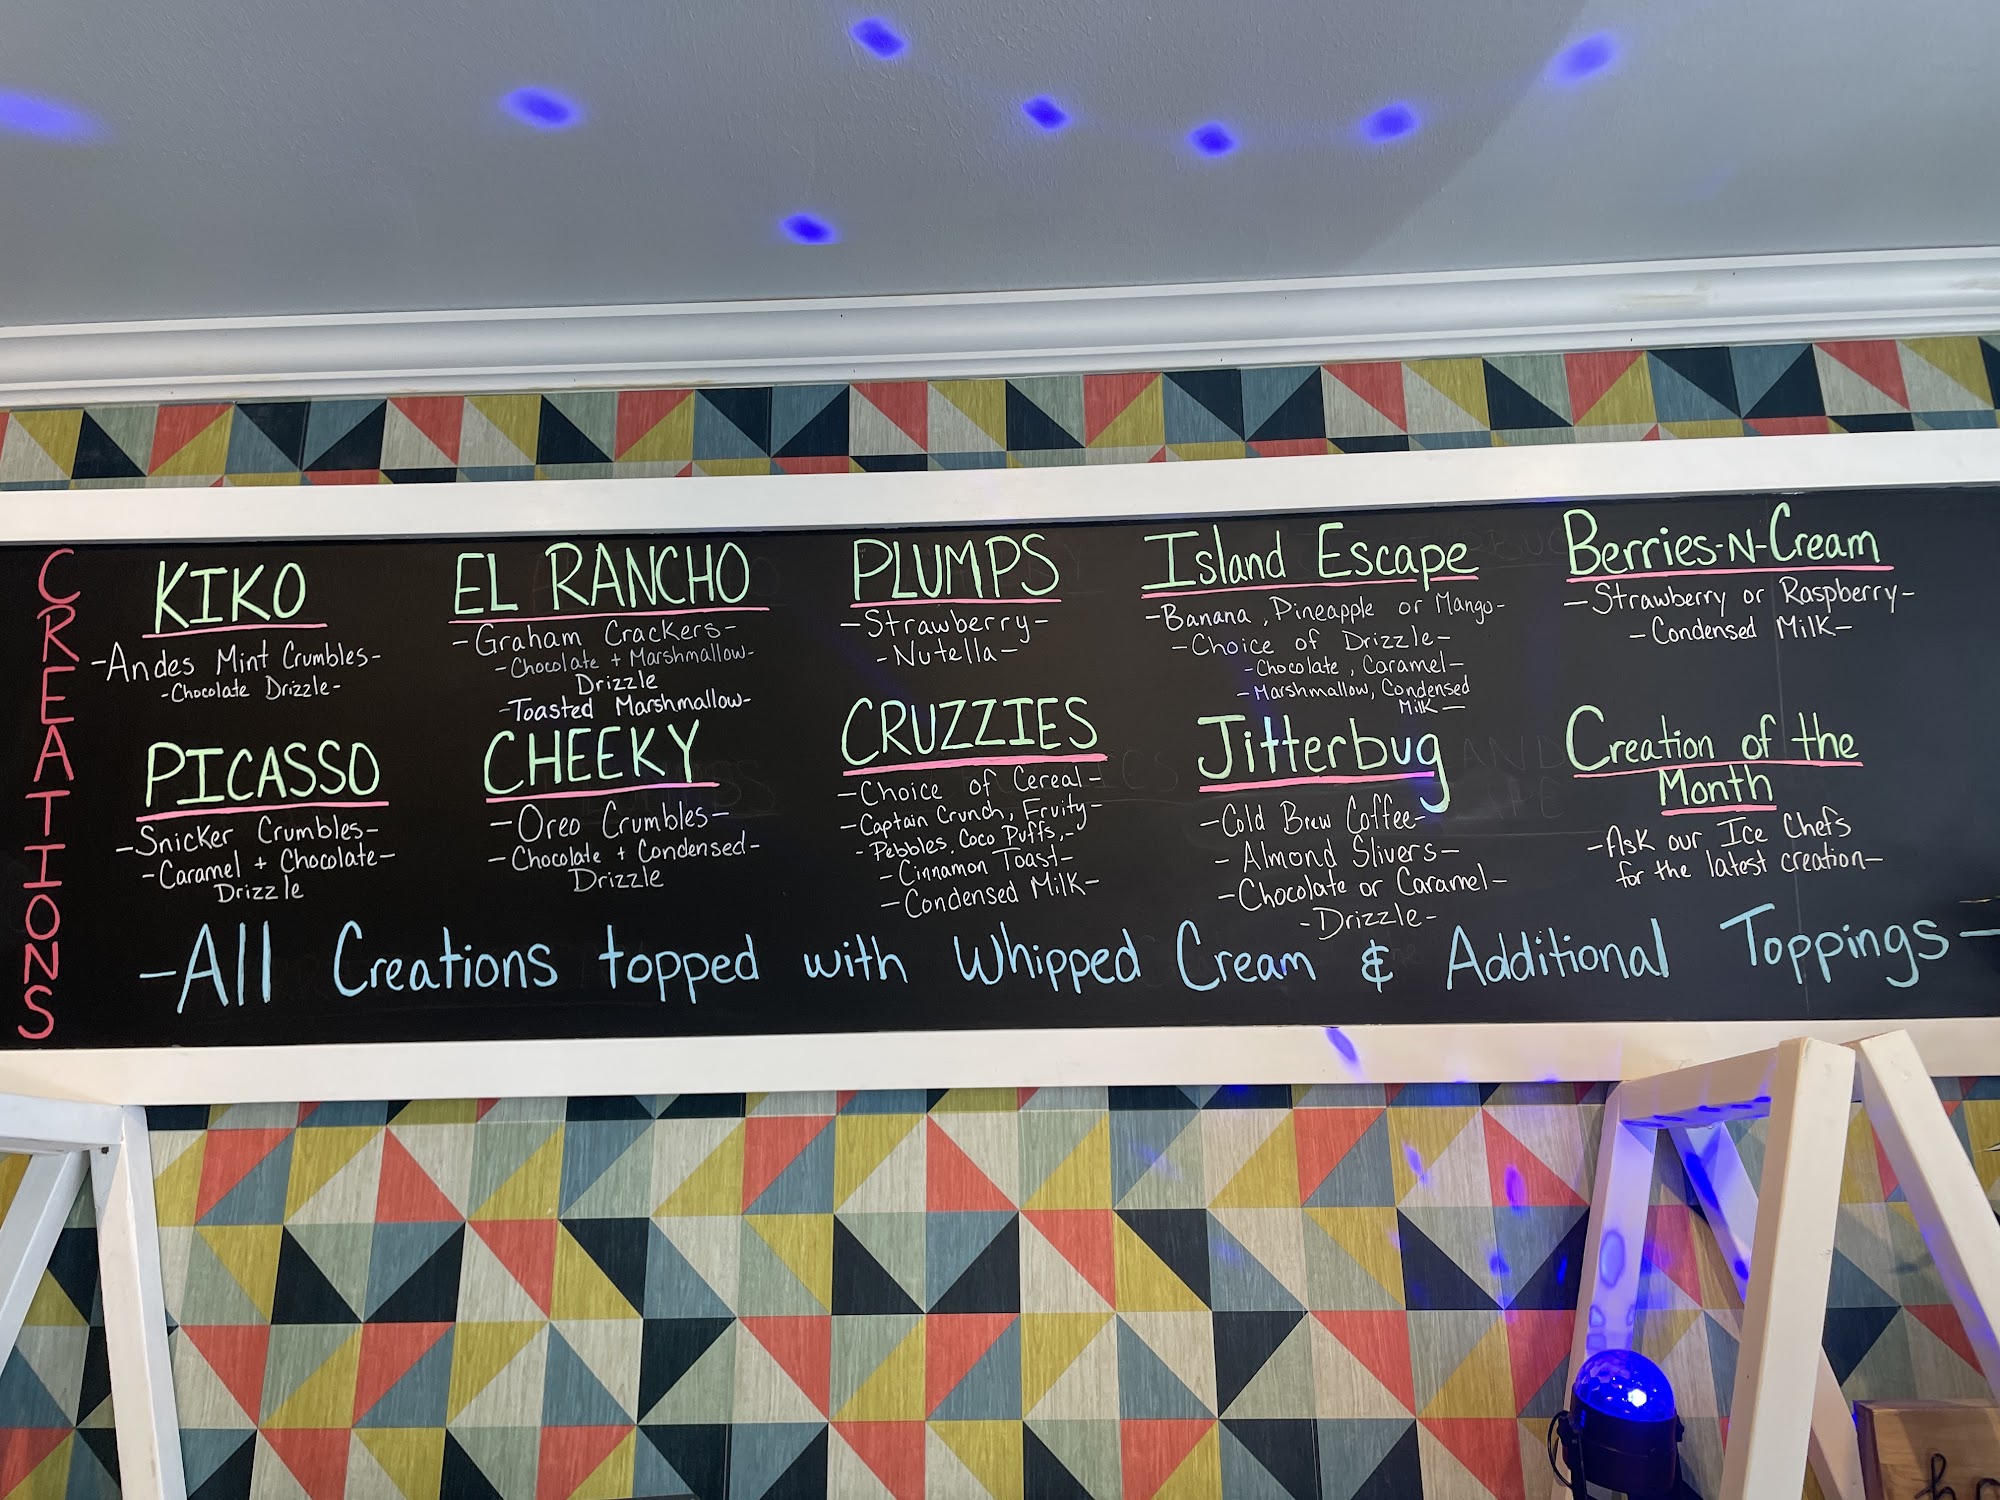 CREATIONS
KIKO
-Andes Mint Crumbles-
-Chocolate Drizzle-
EL RANCHO
-Graham Crackers-
-Chocolate + Marshmallow-
Drizzle
-Toasted Marshmallow-
PLUMPS
-Strawberry-
-Nutella-
Island Escape
-Banana, Pineapple or Mango-
-Choice of Drizzle-
-Chocolate, Caramel-
-Marshmallow, Condensed
Milk-
Berries-N-Cream
-Strawberry or Raspberry-
-Condensed Milk-
PICASSO
-Snicker Crumbles-
-Caramel + Chocolate-
Drizzle
CHEEKY
-Oreo Crumbles-
-Chocolate + Condensed-
Drizzle
CRUZZIES
-Choice of Cereal-
-Captain Crunch, Fruity-
-Pebbles, Coco Puffs,-
-Cinnamon Toast-
-Condensed Milk-
Jitterbug
-Cold Brew Coffee-
-Almond Slivers-
-Chocolate or Caramel-
-Drizzle-
Creation of the
Month
-Ask our Ice Chefs
for the latest creation-
-All Creations topped with Whipped Cream & Additional Toppings-